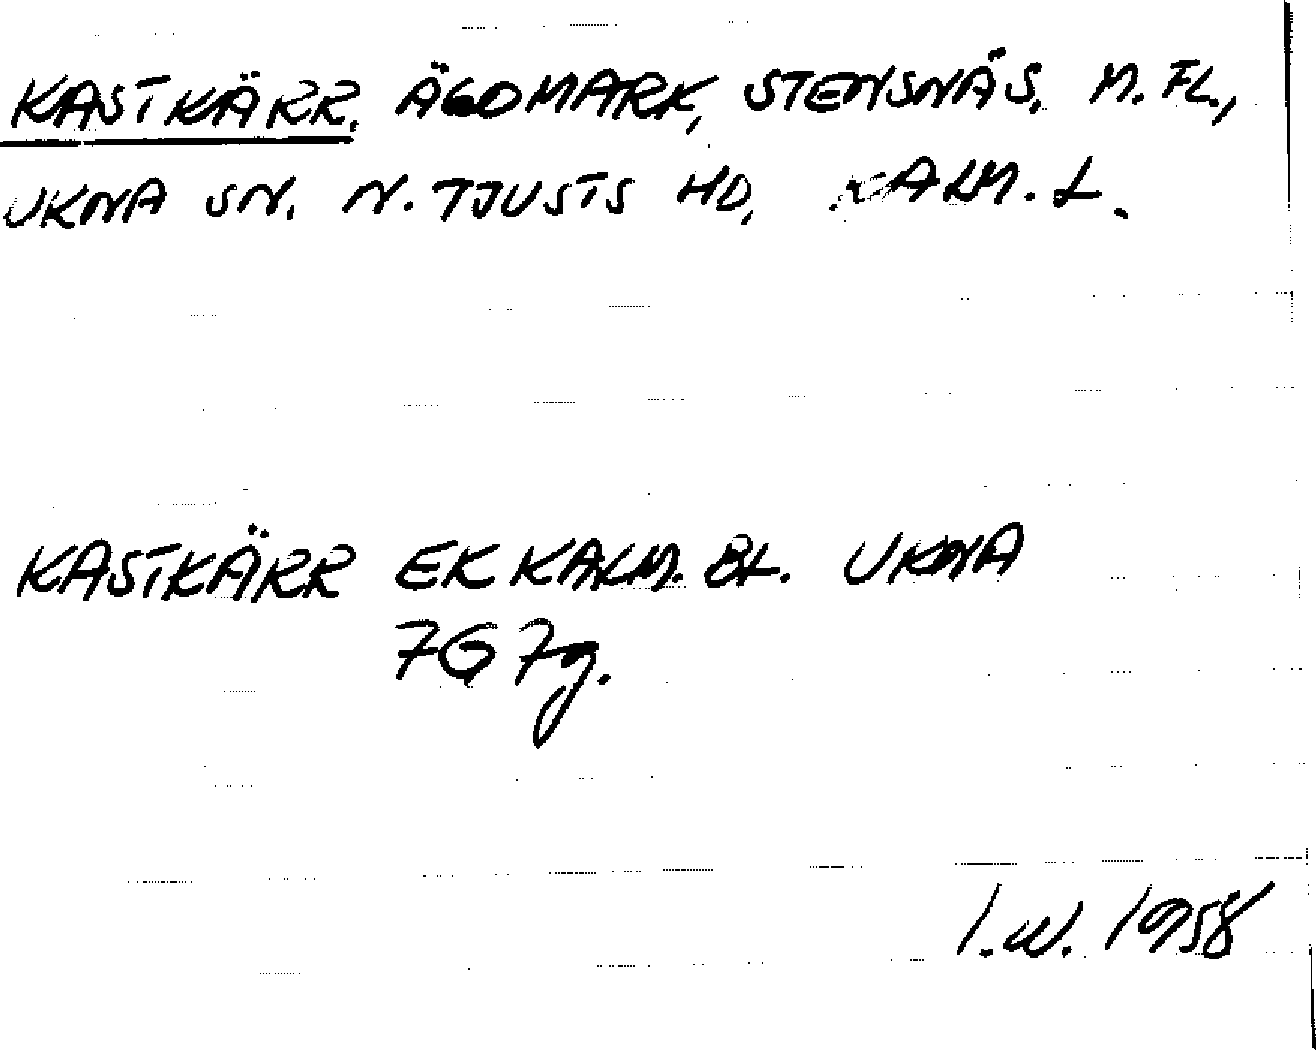 KASTKÄRR, ÄGOMARK, STENSNÄS, M. FL.,
UKNA SN. N. TJUSTS HD, KALM. L.
KASTKÄRR EK KALM. BL. UKNA
7G 7g.
I.W. 1958